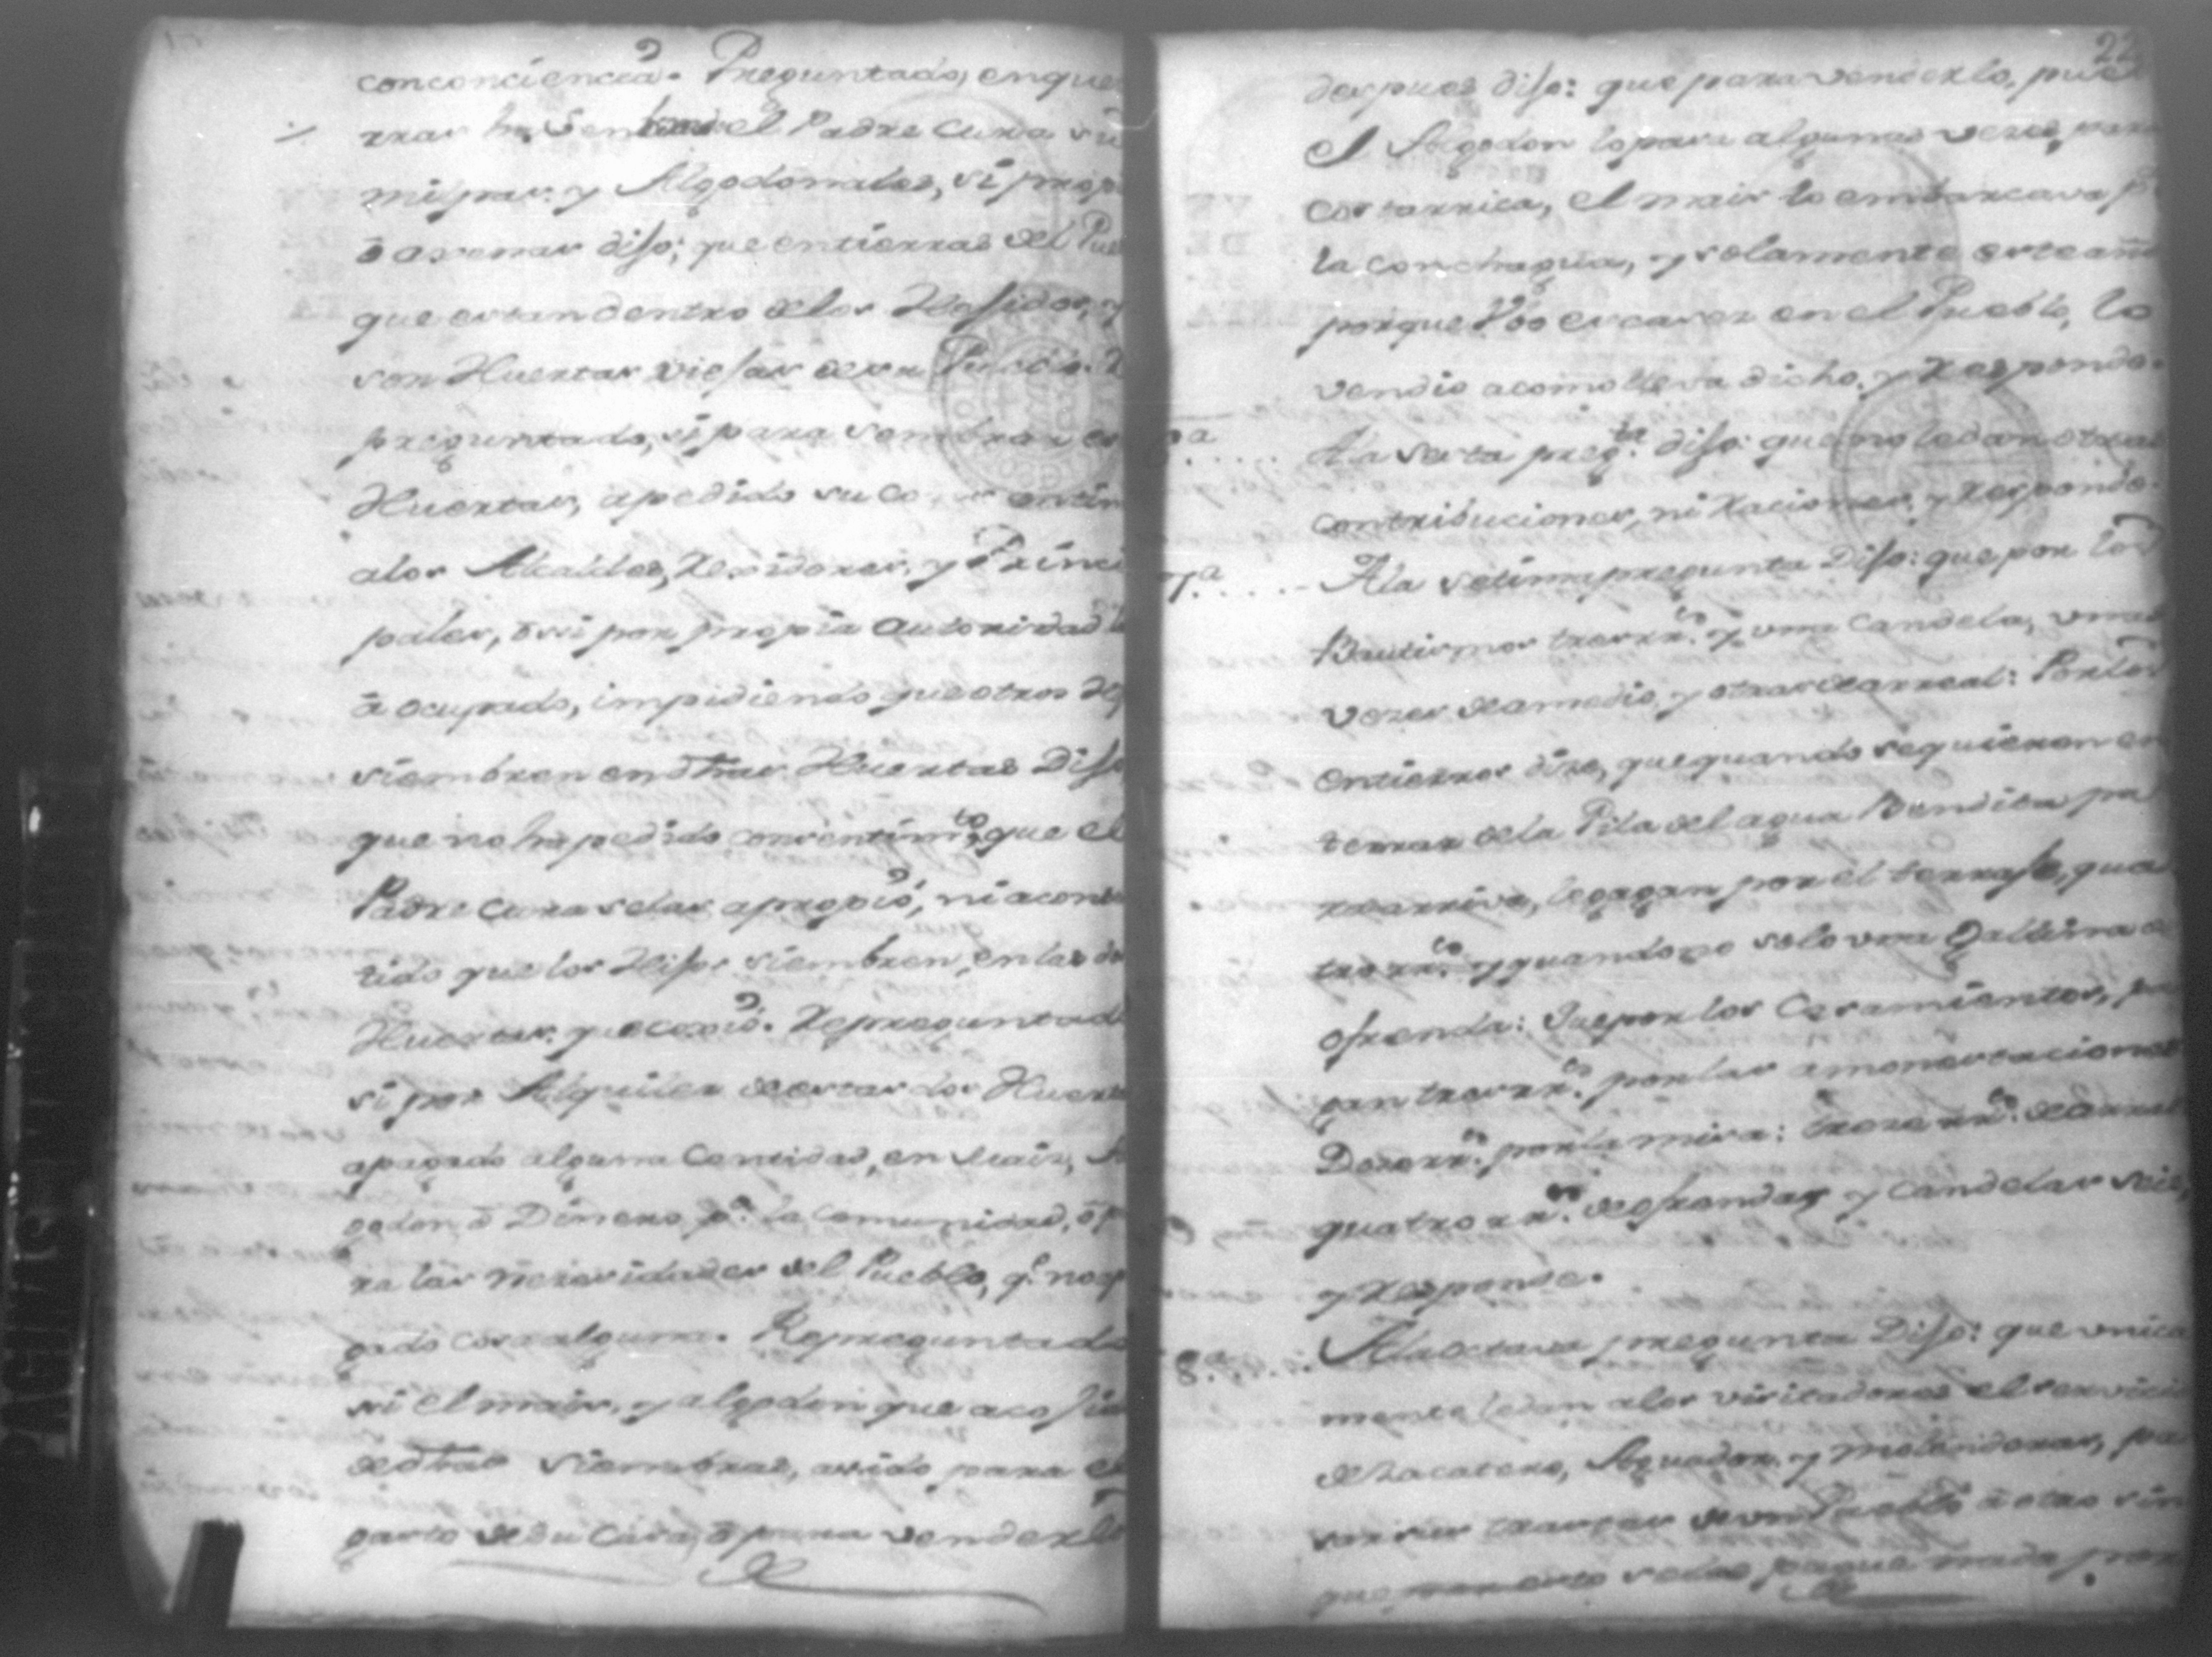 conconciencia. Preguntado, enque
rras ha sembrado el Padre Cura su
milpas y Algodonales, si propi
ô agenas dijo; que entierras del Pue
que estan dentro de los Hejidos, y
son Huertas viejas dese Pueblo. R
preguntado, si para sembrar es
Huertas, apedido su consentim
alos Alcaldes, Rexidores, y Princi
pales, ô si por propia autoridad l
â ocupado, impidiendo que otros Hij
siembren en dhas Huertas Dijo
que no ha pedido consentimto, que el
Padre Cura selas apropió, ni acons
tido que los Hijos siembren, en las do
Huertas. y Repreguntado
si por Alquiler de estas dos Huerta
apagado alguna Cantidad, en Maiz, A
godon ô Dinero pa. la Comunidad, ô p
ra las nezesidades del Pueblo, q.e no a p
gado cosa alguna. Repreguntado
si el mais, y algodon que a cojid
de dhas siembras, asido para el
gasto de su Casa, ô para venderlo
22
despues dijo: que para venderlo, pues
el Algodon lo pasa algunas vezes para
Costarrica, el mais lo embarcava p
la conchagua, y solamente este año
porque hôo escases en el Pueblo, lo
vendio a como lleva dicho, y Responde.
6a..... Ala sexta preg.ta dijo: que no le dan otras
contribuciones, ni Raciones, y Responde.
7.a .... Ala setima pregunta Dijo: que por los
Bautismos tres rr.s y una Candela, unas
vezes de amedio, y otras de a real: Por los
Entierros dize, que quando se quieren en
terrar de la Pila del agua Bendita pa
ra arriva, le pagan por el terraje, qua
tro rr.s y quando no solo una Gallina de
ofrenda: Que por los Casamientos, pa
gan tres rr.s por las amonestaciones
Doze rr.s por la misa: treze rr.s de arras
quatro rr.s de ofrendas y Candelas seis,
y Responde.
8.a..... Ala octava pregunta Dijo: que unica
mente le dan alos visitadores el servicio
de Zacatero, Aguador y molenderas, pa
sar sus trastes de un Pueblo â otro sin
que se les pague nada por